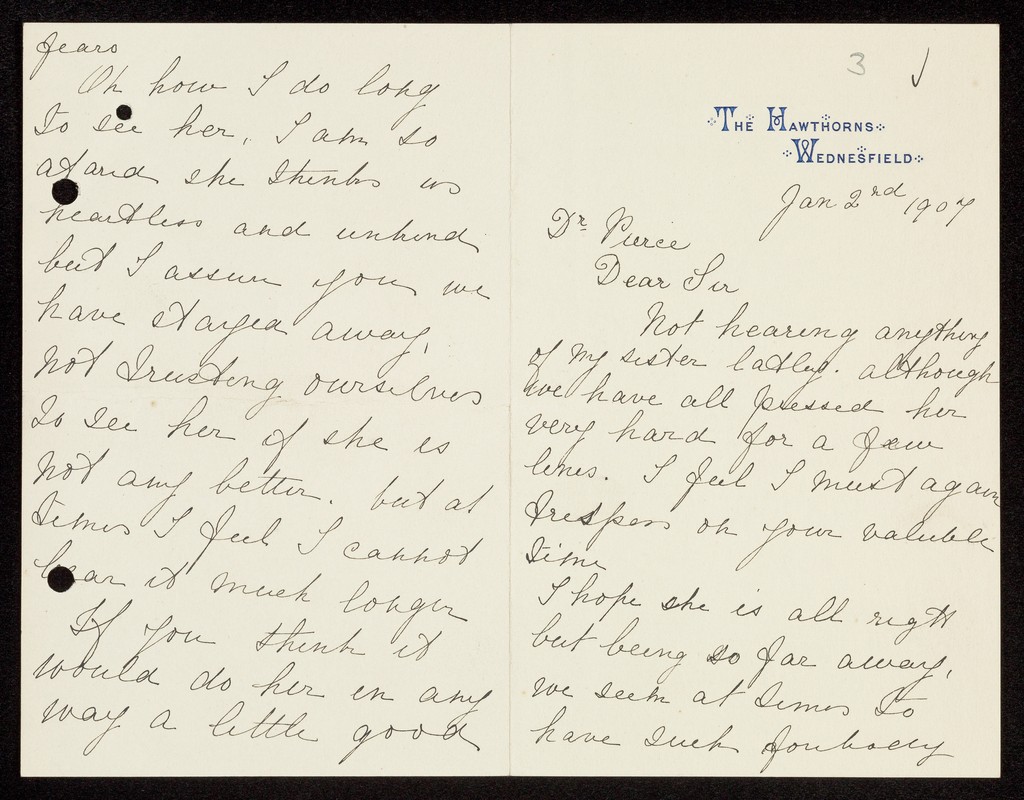 3
THE HAWTHORNS
WEDNESFIELD
Jan 2rd 1907
Dr Pierce
Dear Sir
Not hearing anything
of my sister latley. although
we have all pressed her
very hard for a few
lines. I feel I must again
trespass on your valuble
time
I hope she is all right
but being so far away,
we seem at times to
have such forbody
fears
Oh how I do long
to see her, I am so
afarid she thinks us
heartless and unkind
but I assure you we
have stayed away,
not trusting ourselves
to see her if she is
not any better. but at
times I feel I cannot
bear it much longer
If you think it
would do her in any
way a little good